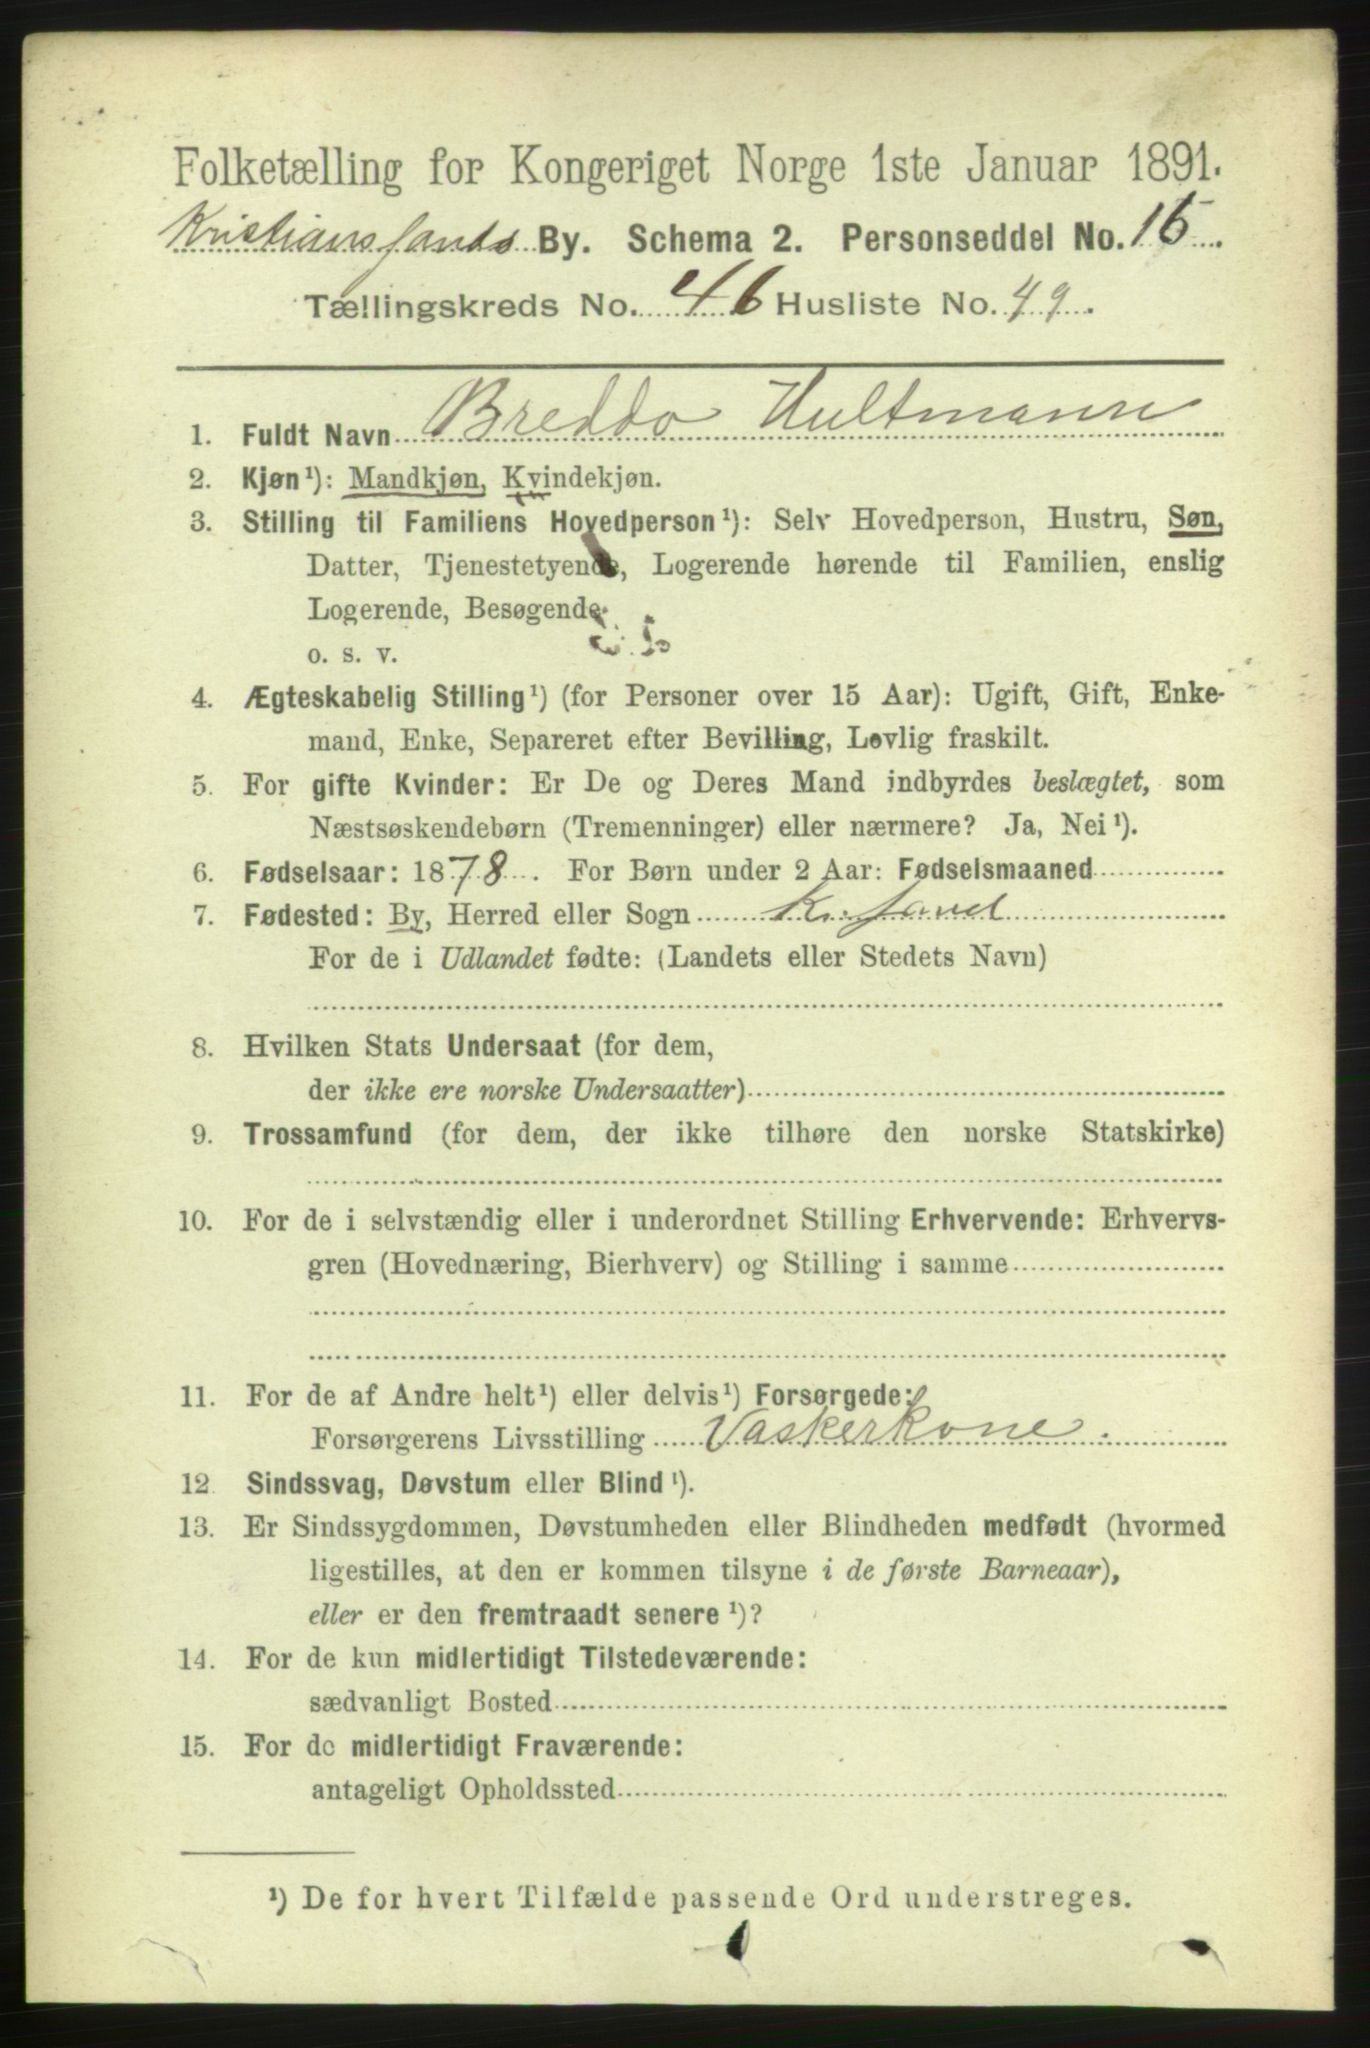 Folketælling for Kongeriget Norge 1ste Januar 1891.
Kristianssands By. Schema 2. Personseddel No. 15.
Tællingskreds No. 46 Husliste No. 49.
1. Fuldt Navn Breddo Hultmann
2. Kjøn¹): Mandkjøn, Kvindekjøn.
3. Stilling til Familiens Hovedperson¹): Selv Hovedperson, Hustru, Søn,
Datter, Tjenestetyende, Logerende hørende til Familien, enslig
Logerende, Besøgende
o. s. v.
4. Ægteskabelig Stilling¹) (for Personer over 15 Aar): Ugift, Gift, Enke-
mand, Enke, Separeret efter Bevilling, Lovlig fraskilt.
5. For gifte Kvinder: Er De og Deres Mand indbyrdes beslægtet, som
Næstsøskendebørn (Tremenninger) eller nærmere? Ja, Nei¹).
6. Fødselsaar: 1878. For Børn under 2 Aar: Fødselsmaaned
7. Fødested: By, Herred eller Sogn Kr.sand
For de i Udlandet fødte: (Landets eller Stedets Navn)
8. Hvilken Stats Undersaat (for dem,
der ikke ere norske Undersaatter)
9. Trossamfund (for dem, der ikke tilhøre den norske Statskirke)
10. For de i selvstændig eller i underordnet Stilling Erhvervende: Erhvervs-
gren (Hovednæring, Bierhverv) og Stilling i samme
11. For de af Andre helt¹) eller delvis¹) Forsørgede:
Forsørgerens Livsstilling Vaskerkone.
12 Sindssvag, Døvstum eller Blind¹).
13. Er Sindssygdommen, Døvstumheden eller Blindheden medfødt (hvormed
ligestilles, at den er kommen tilsyne i de første Barneaar),
eller er den fremtraadt senere¹)?
14. For de kun midlertidigt Tilstedeværende:
sædvanligt Bosted
15. For de midlertidigt Fraværende:
antageligt Opholdssted
¹) De for hvert Tilfælde passende Ord understreges.